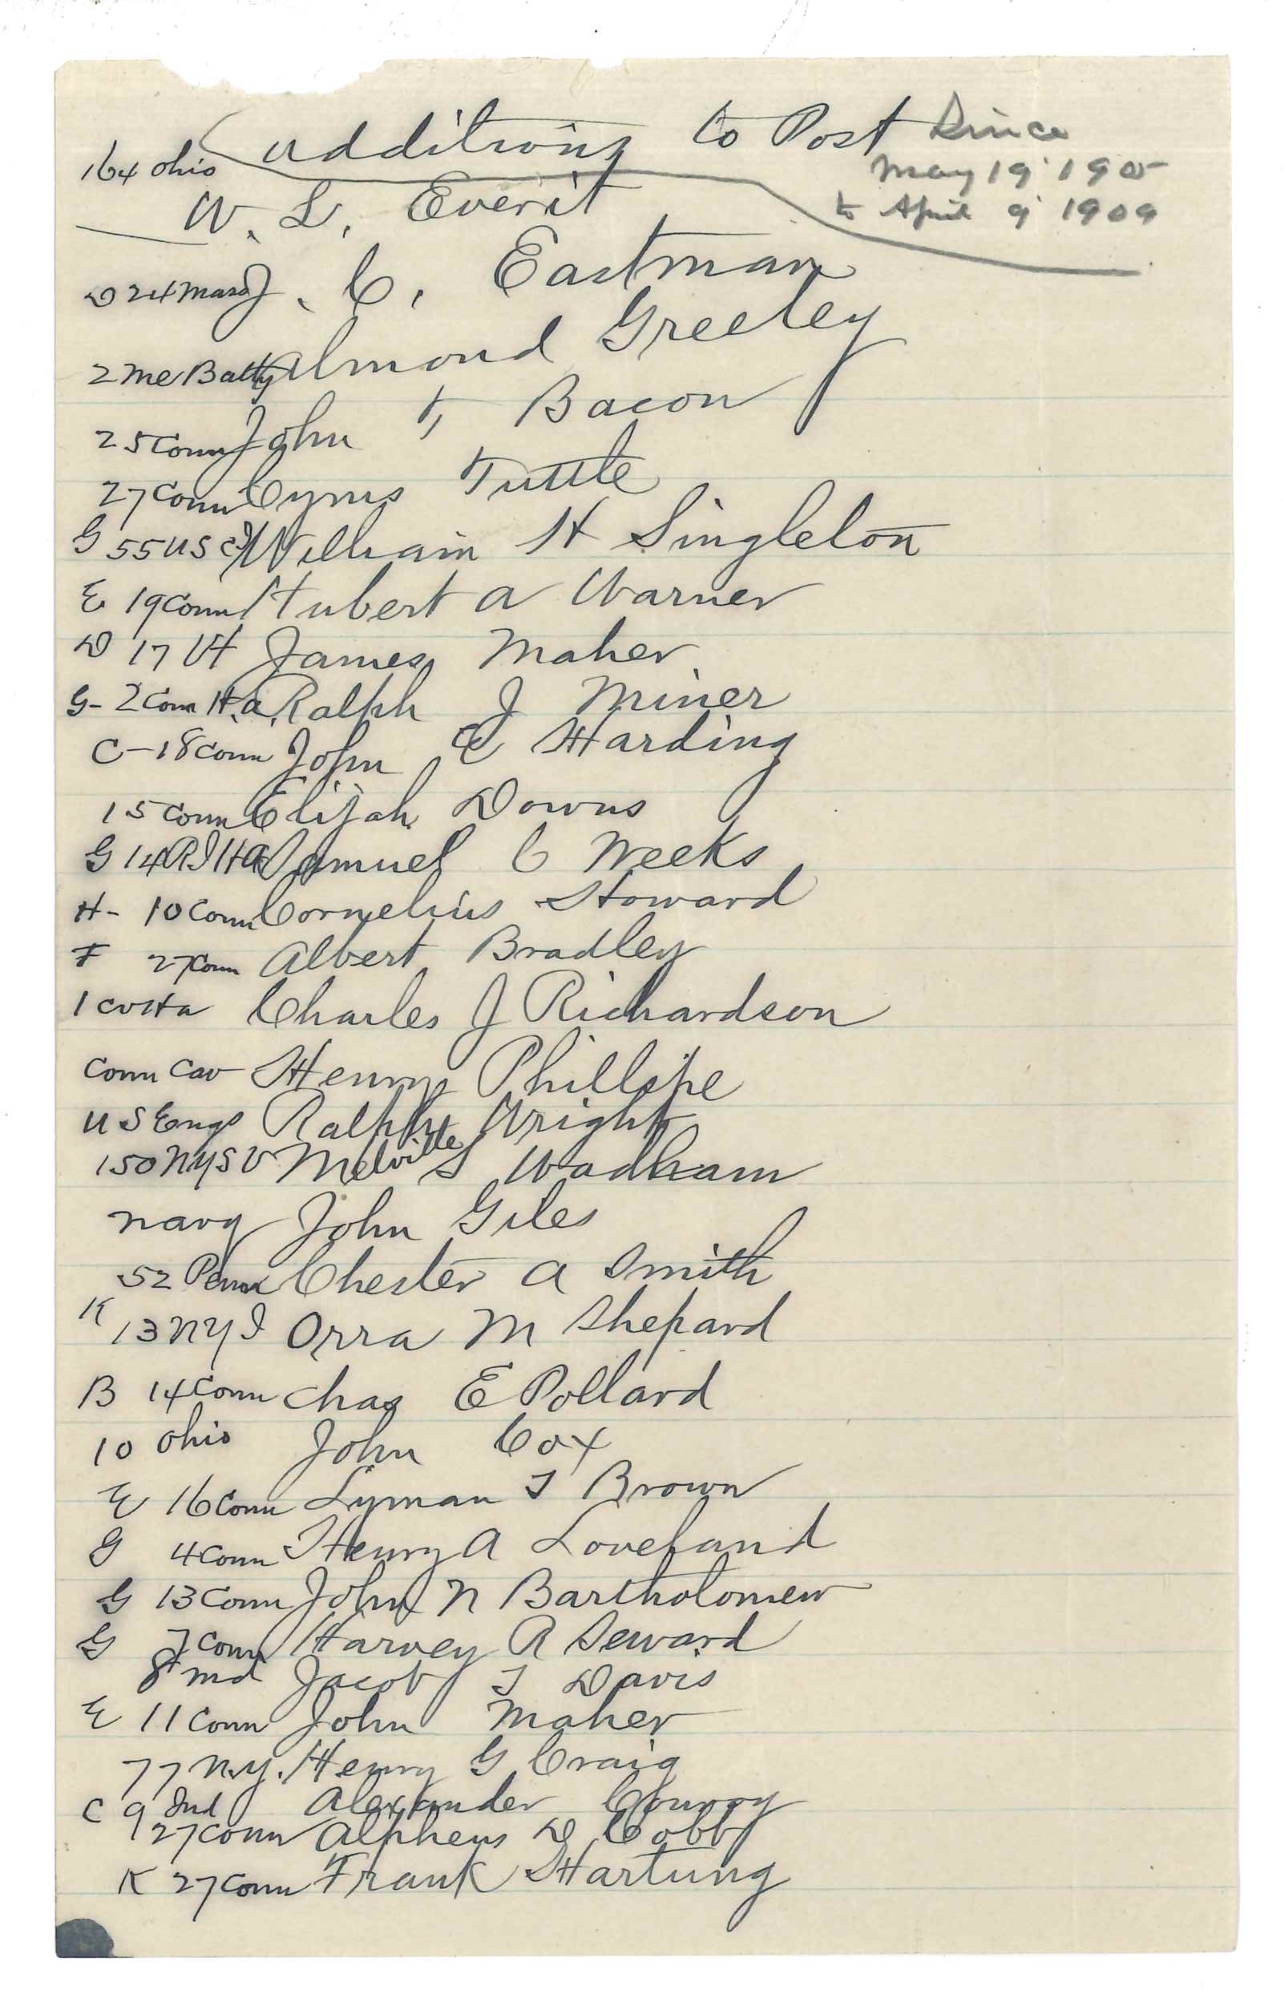 Additions to Post Since
May 19 1905
to April 9 1909
164 Ohio
W. L. Everit
D 24 Mass J. C. Eastman
2 Me Batty Almond Greeley
25 Conn John T, Bacon
27 Conn Cyrus Tuttle
G 55 US C I William H Singleton
E 19 Conn Hubert A Warner
D 17 Vt James Maher
G - 2 Conn H.A. Ralph J Miner
C - 18 Conn John E Harding
15 Conn Elijah Downs
G 14 R I H A Samuel C Weeks
H - 10 Conn Cornelius Howard
F 27 Conn Albert Bradley
Charles J Richardson
Conn Cav Henry Phillipe
U S Engs Ralph Wright
150 NYSV Melville S Wadham
Navy John Giles
52 Penn Chester A Smith
K 13 NY I Orra M Shepard
B 14 Conn Chas E Pollard
10 Ohio John Cox
E 16 Conn Lyman T Brown
G 4 Conn Henry A Loveland
G 13 Conn John N Bartholomew
G 7 Conn Harvey R Seward
8 Md Jacob T Davis
E 11 Conn John Maher
77 N.Y. Henry G Craig
C 9 Ind Alexander Conroy
27 Conn Alpheus D Cobb
K 27 Conn Frank Hartung